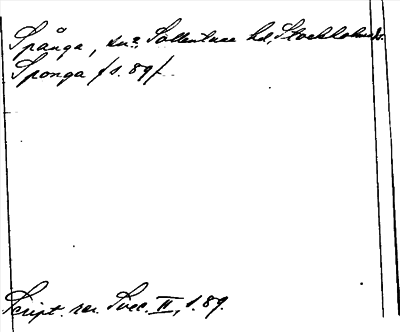 Spånga, sn, Sollentuna hd, Stockholms l.
Sponga /s. 89/
Script. rer. Svec. II, s. 89.